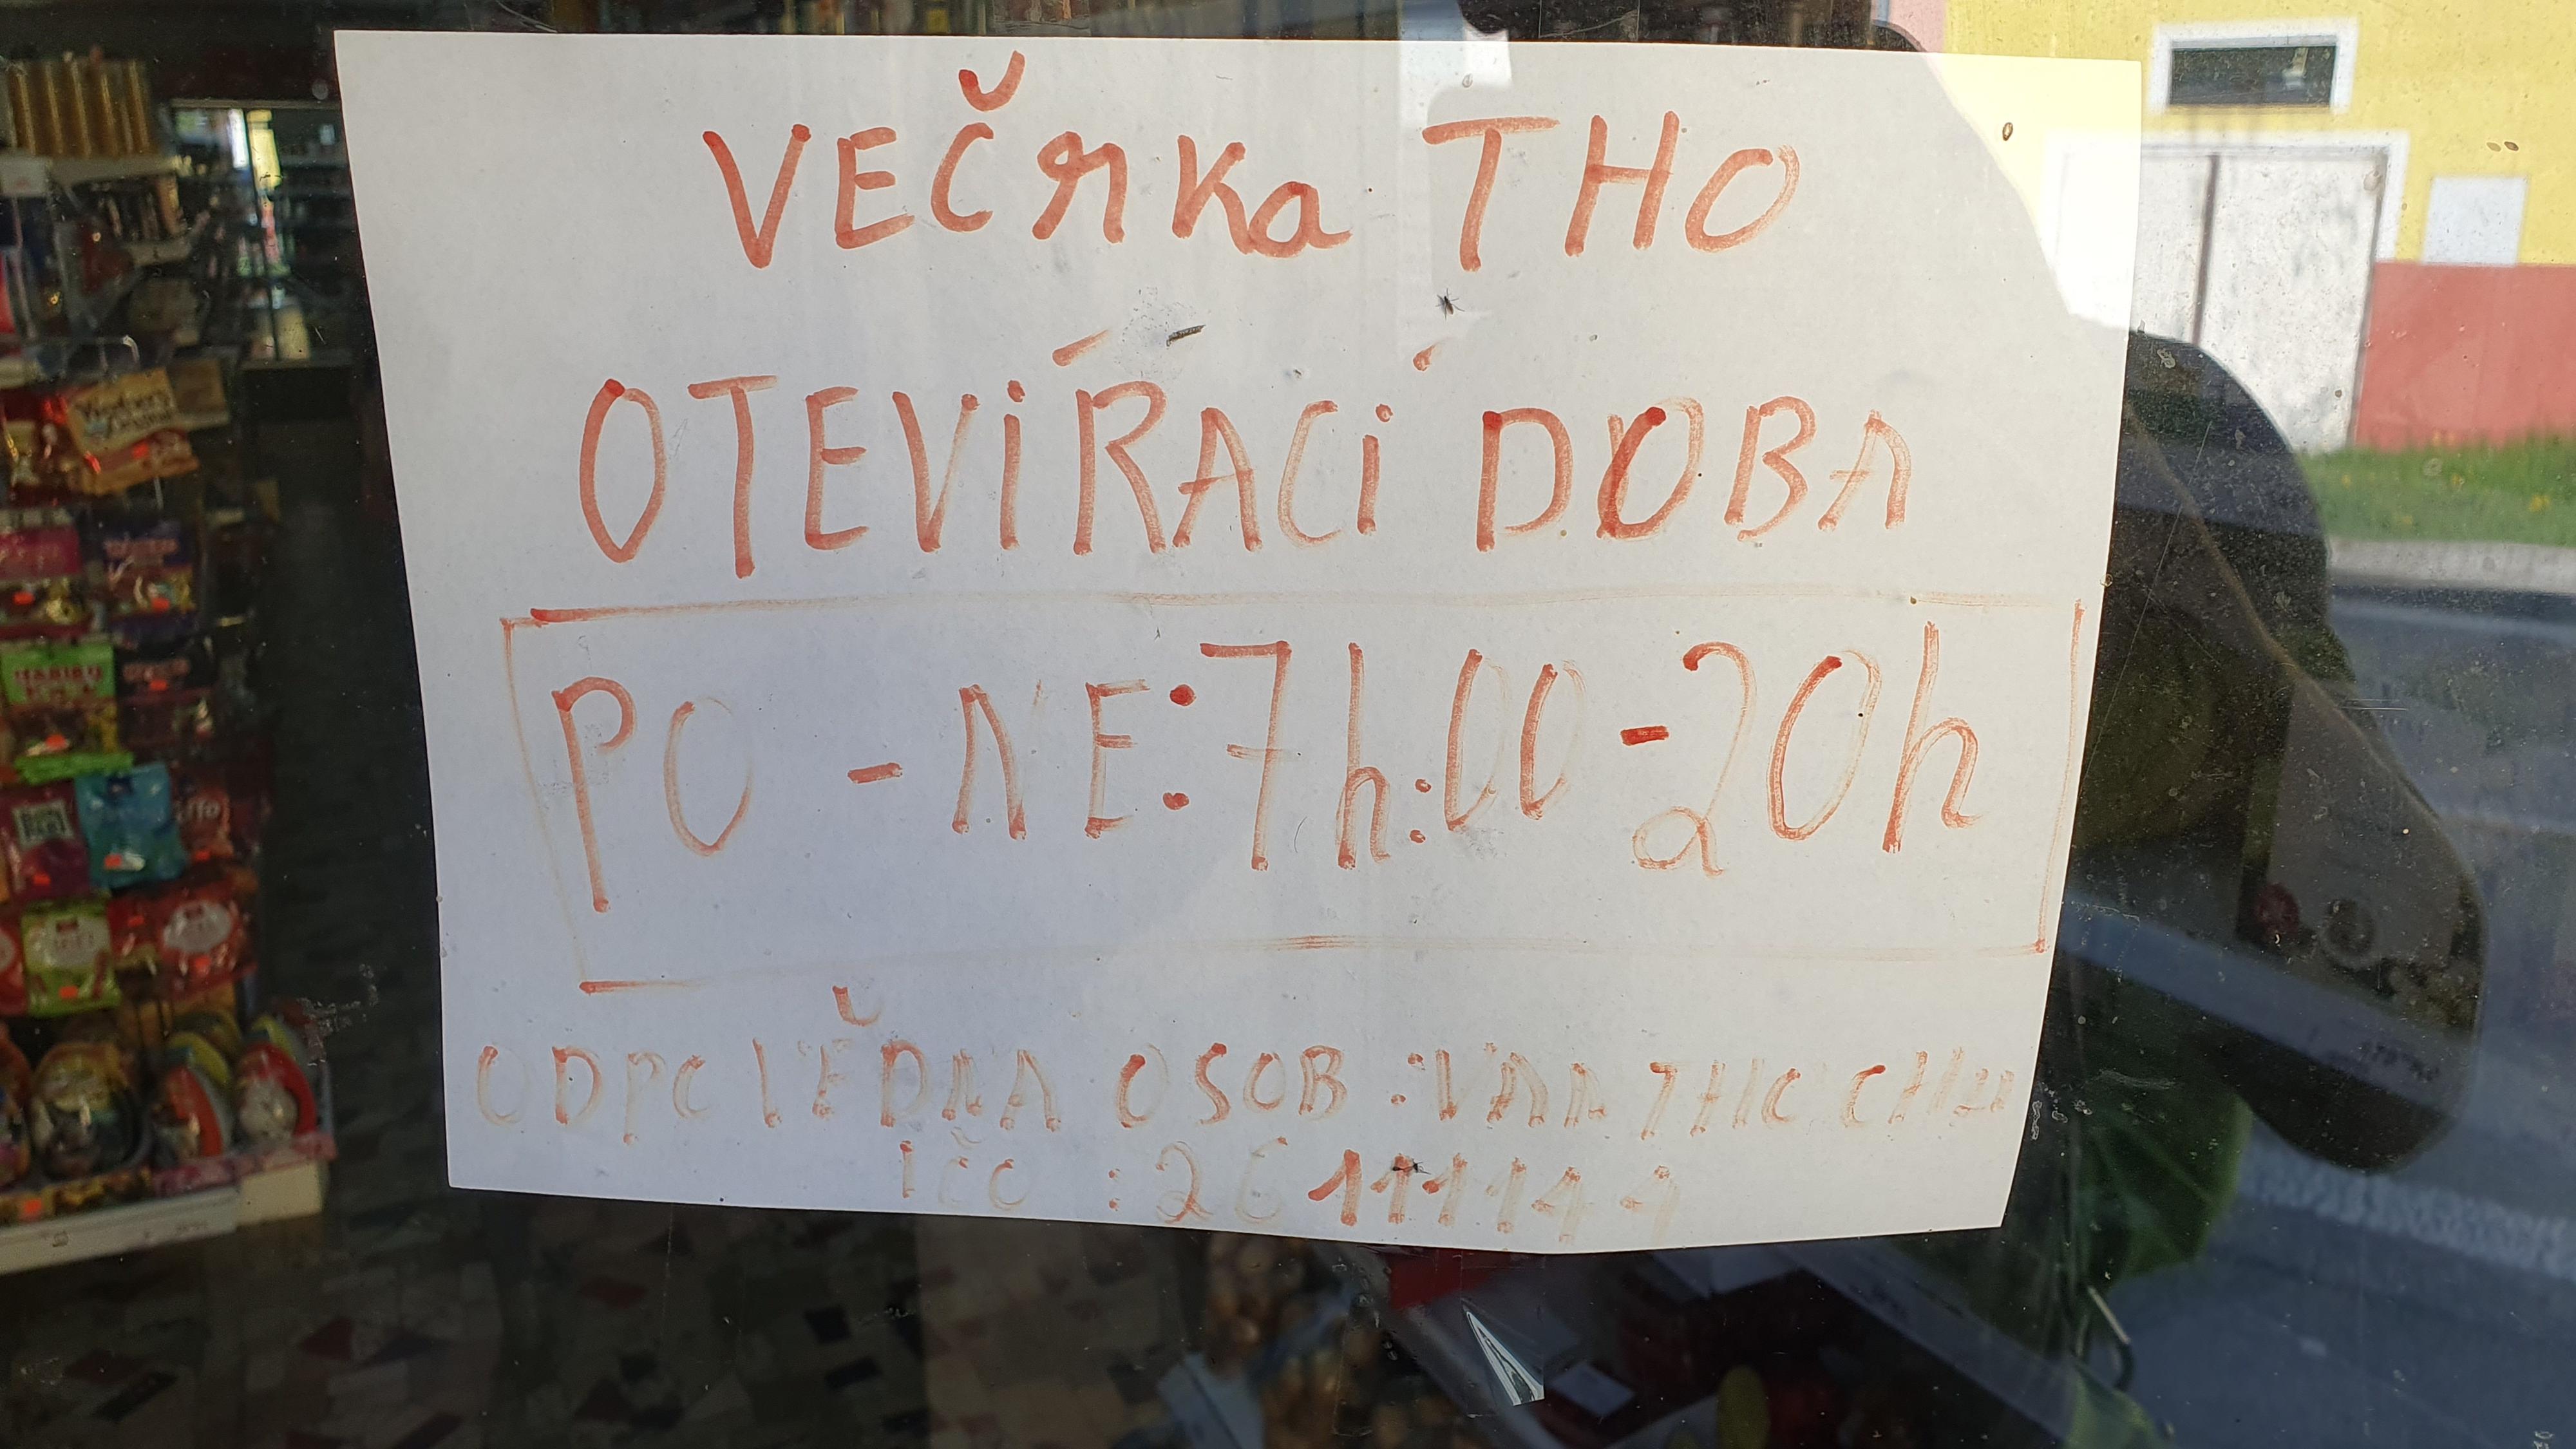 VEČRKa THO
OTEVÍRACÍ DOBA
PO - NE: 7h:00 - 20h
ODPOVĚDNA OSOB : VAN THO CHU
IČO :
HARIBO